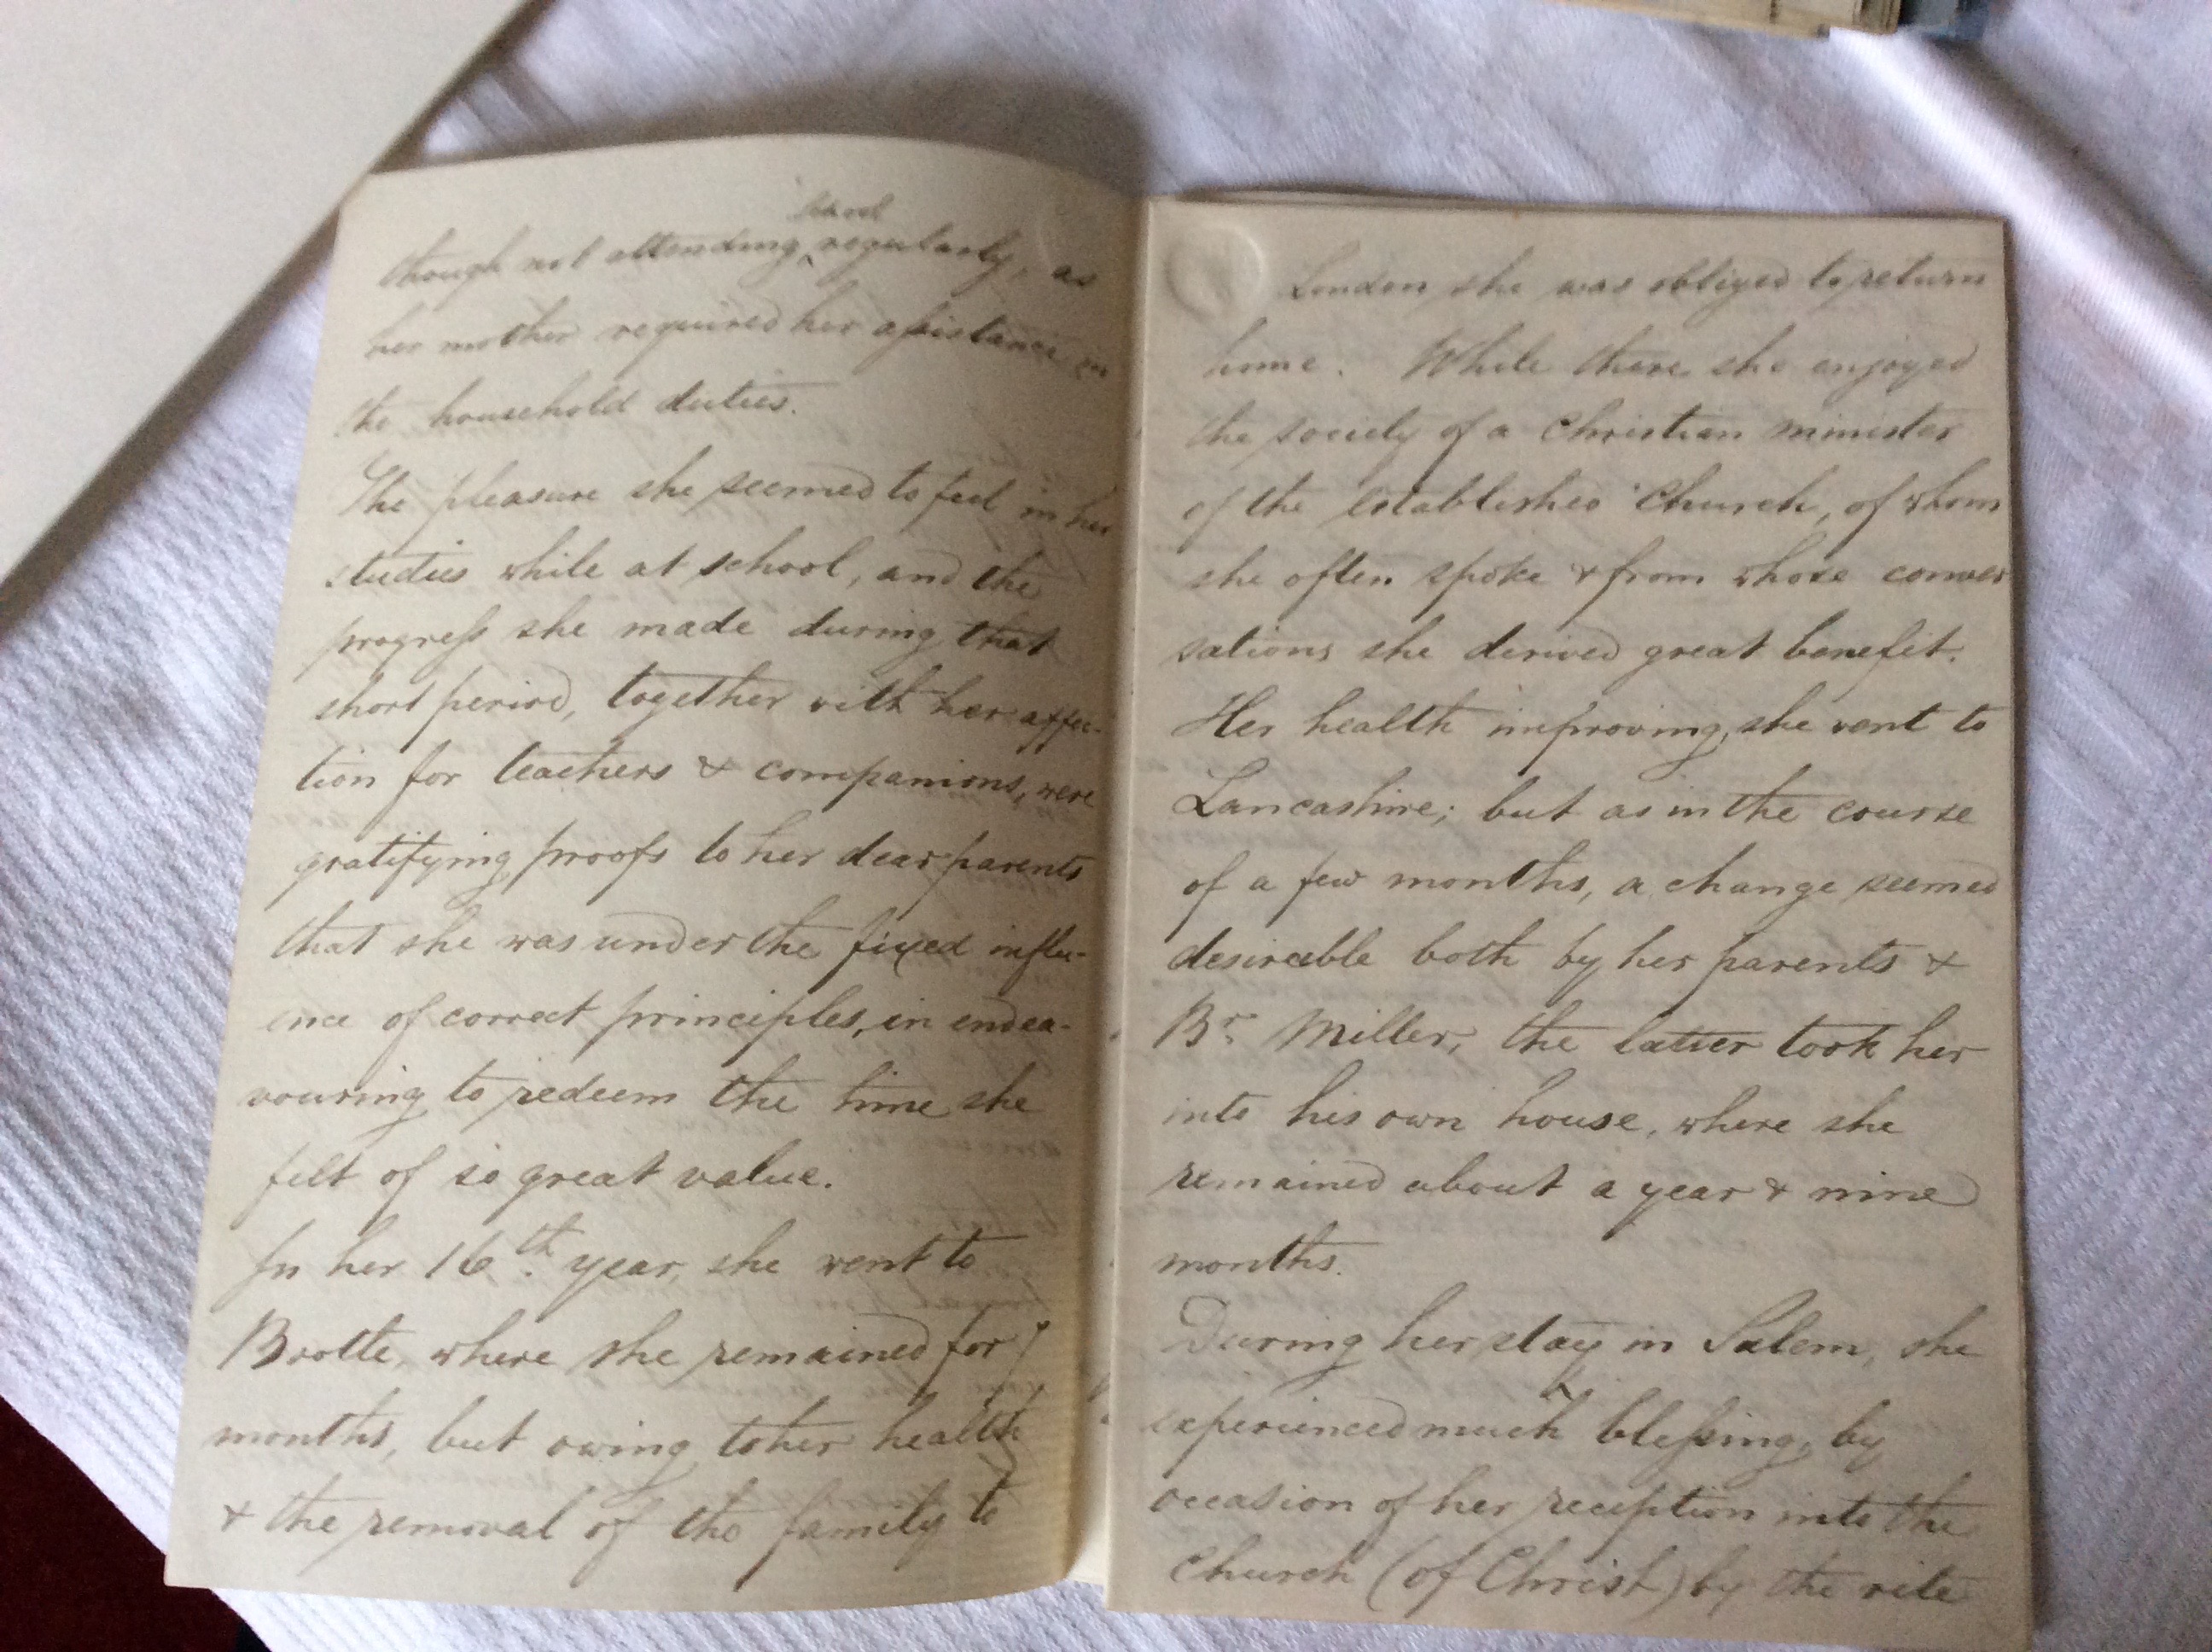 school
though not attending ‸ regularly, as
her mother required her assistance in
the household duties.
The pleasure she seemed to feel in her
studies while at school, and the
progress she made during that
short period, together with her affec-
tion for teachers & companions, were
gratifying proofs to her dear parents
that she was under the fixed influ-
ence of correct principles, in endea-
vouring to redeem the time she
felt of so great value.
In her 16th year, she went to
where she remained for
months, but owing to her health
& the removal of the family to
London she was obliged to return
home. While there she enjoyed
the society of a Christian minister
of the established Church, of whom
she often spoke & from whose conver
sations she derived great benefit.
Her health improving, she went to
Lancashire; but as in the course
of a few months, a change seemed
desireable both by her parents &
Br. Miller, the latter took her
into his own house, where she
remained about a year & nine
months.
During her stay in Salem, she
experienced much blessing, by
occasion of her reception into the
Church (of Christ) by the rite